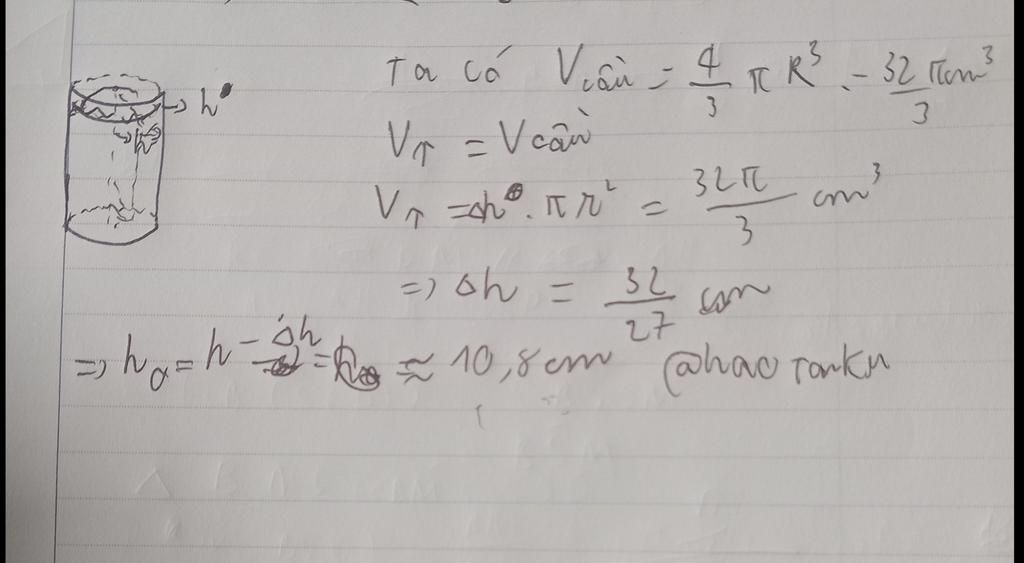 Ta có V cầu = 4/3 π R³ = 32/3 π cm³
→ h
V↑ = V cầu
V↑ = Δh . π r² = 32π/3 cm³
=> Δh = 32/27 cm
=> h₀ = h - Δh = ≈ 10,8 cm @hao Tonku